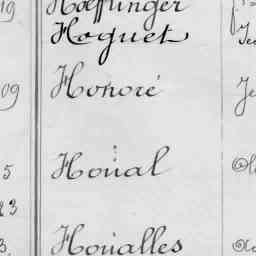 19 Hoeffinger
Hoguet
09 Honoré
5 Houal
23
3 Houalles